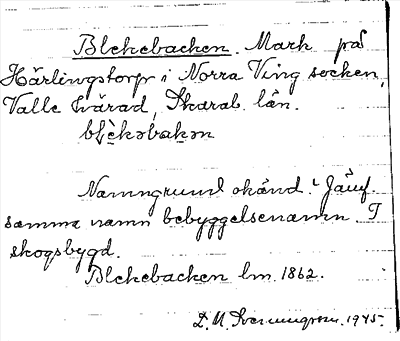 Blekebacken. Mark på
Härlingstorp i Norra Ving socken,
Valle härad, Skarab. län.
blèkəbakən
Namngrund okänd. Jämf.
samma namn bebyggelsenamn. I
skogsbygd.
Blekebacken lm. 1862.
1945.